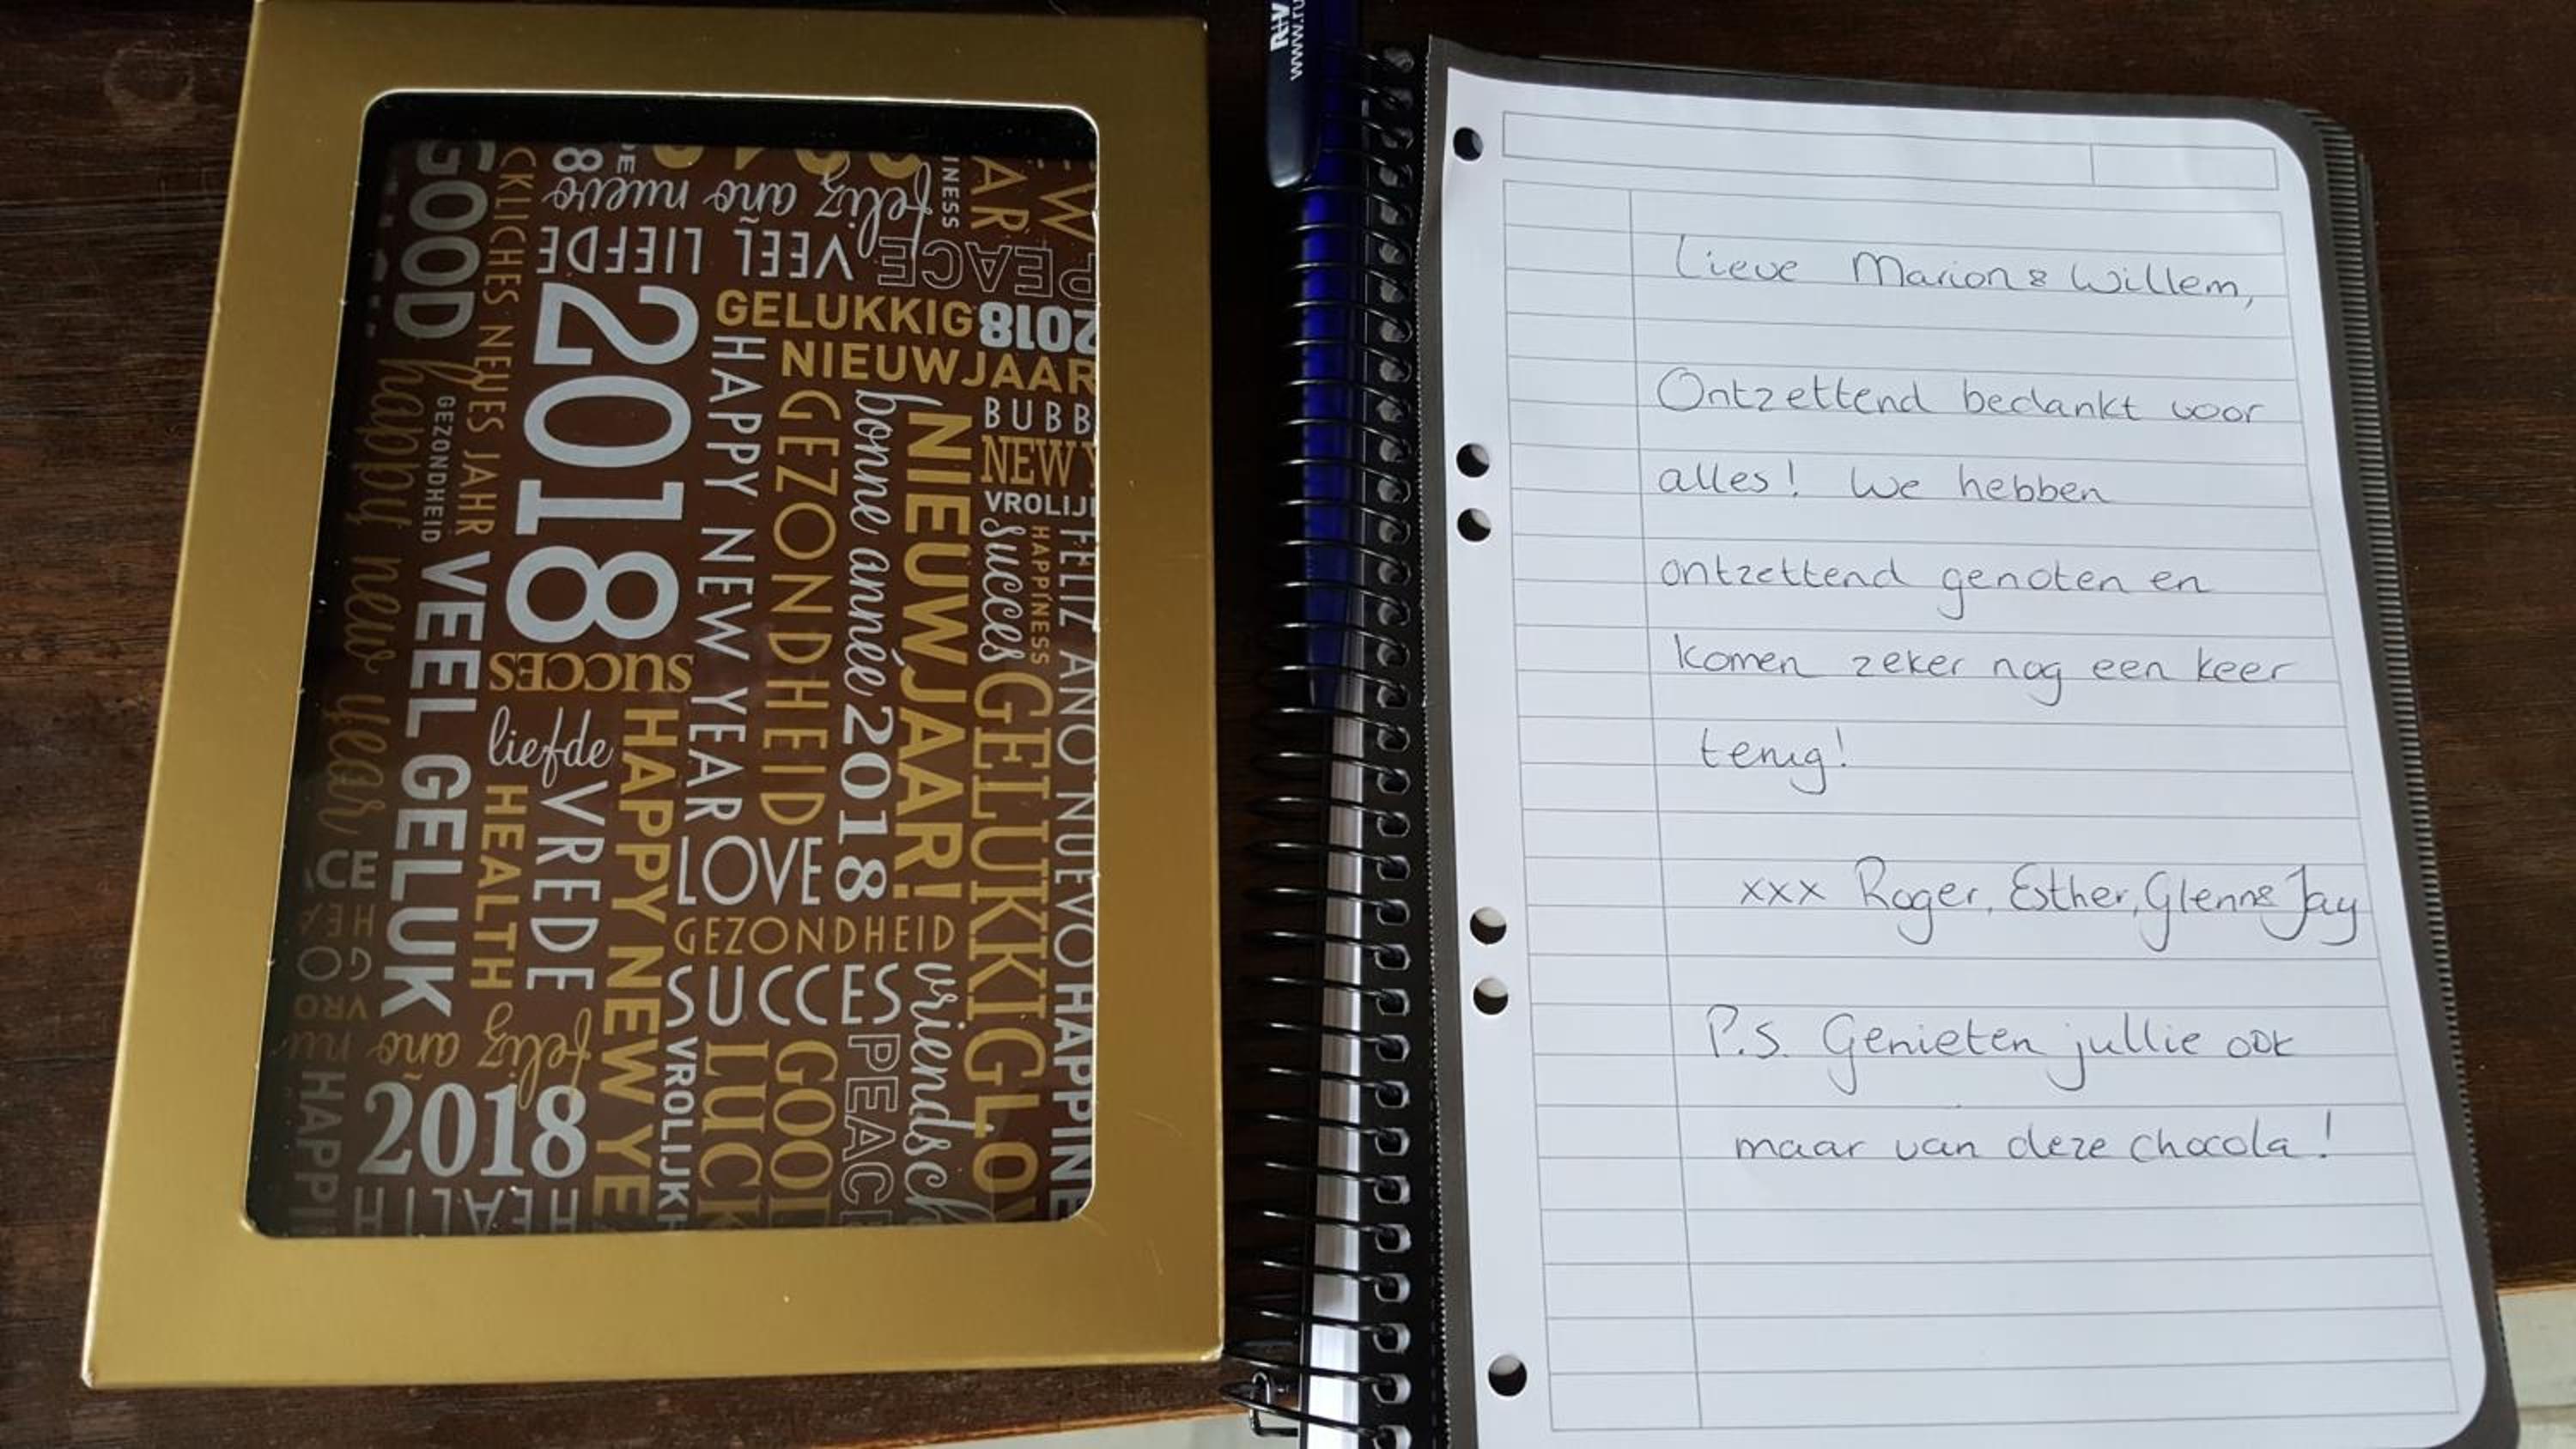 GOOD
CKLICHES NEUES JAHR
8
feliz año nuevo
INESS
VEEL LIEFDE
PEACE
2018
GELUKKIG
2018
NIEUWJAAR
happy new year
GEZONDHEID
VEEL GELUK
HAPPY NEW YEAR
GEZONDHEID
bonne année 2018
NIEUWJAAR!
BUBB
NEW Y
VROLIJ
succes
HAPPINESS
FELIZ ANO NUEVO
GELUKKIG
SUCCES
liefde
HEALTH
VREDE
HAPPY NEW YE
LOVE
GEZONDHEID
SUCCES
vriendsch
CE
HEA
GO
VRO
feliz año nu
2018
HAPPI
HEALTH
VROLIJK
GOOD
LUCK
PEACE
LO
HAPPINE
www.ru
Lieve Marion & Willem,
Ontzettend bedankt voor
alles! We hebben
ontzettend genoten en
komen zeker nog een keer
terug!
xxx Roger, Esther, Glenn & Jay
P.S. Genieten jullie ook
maar van deze chocola!